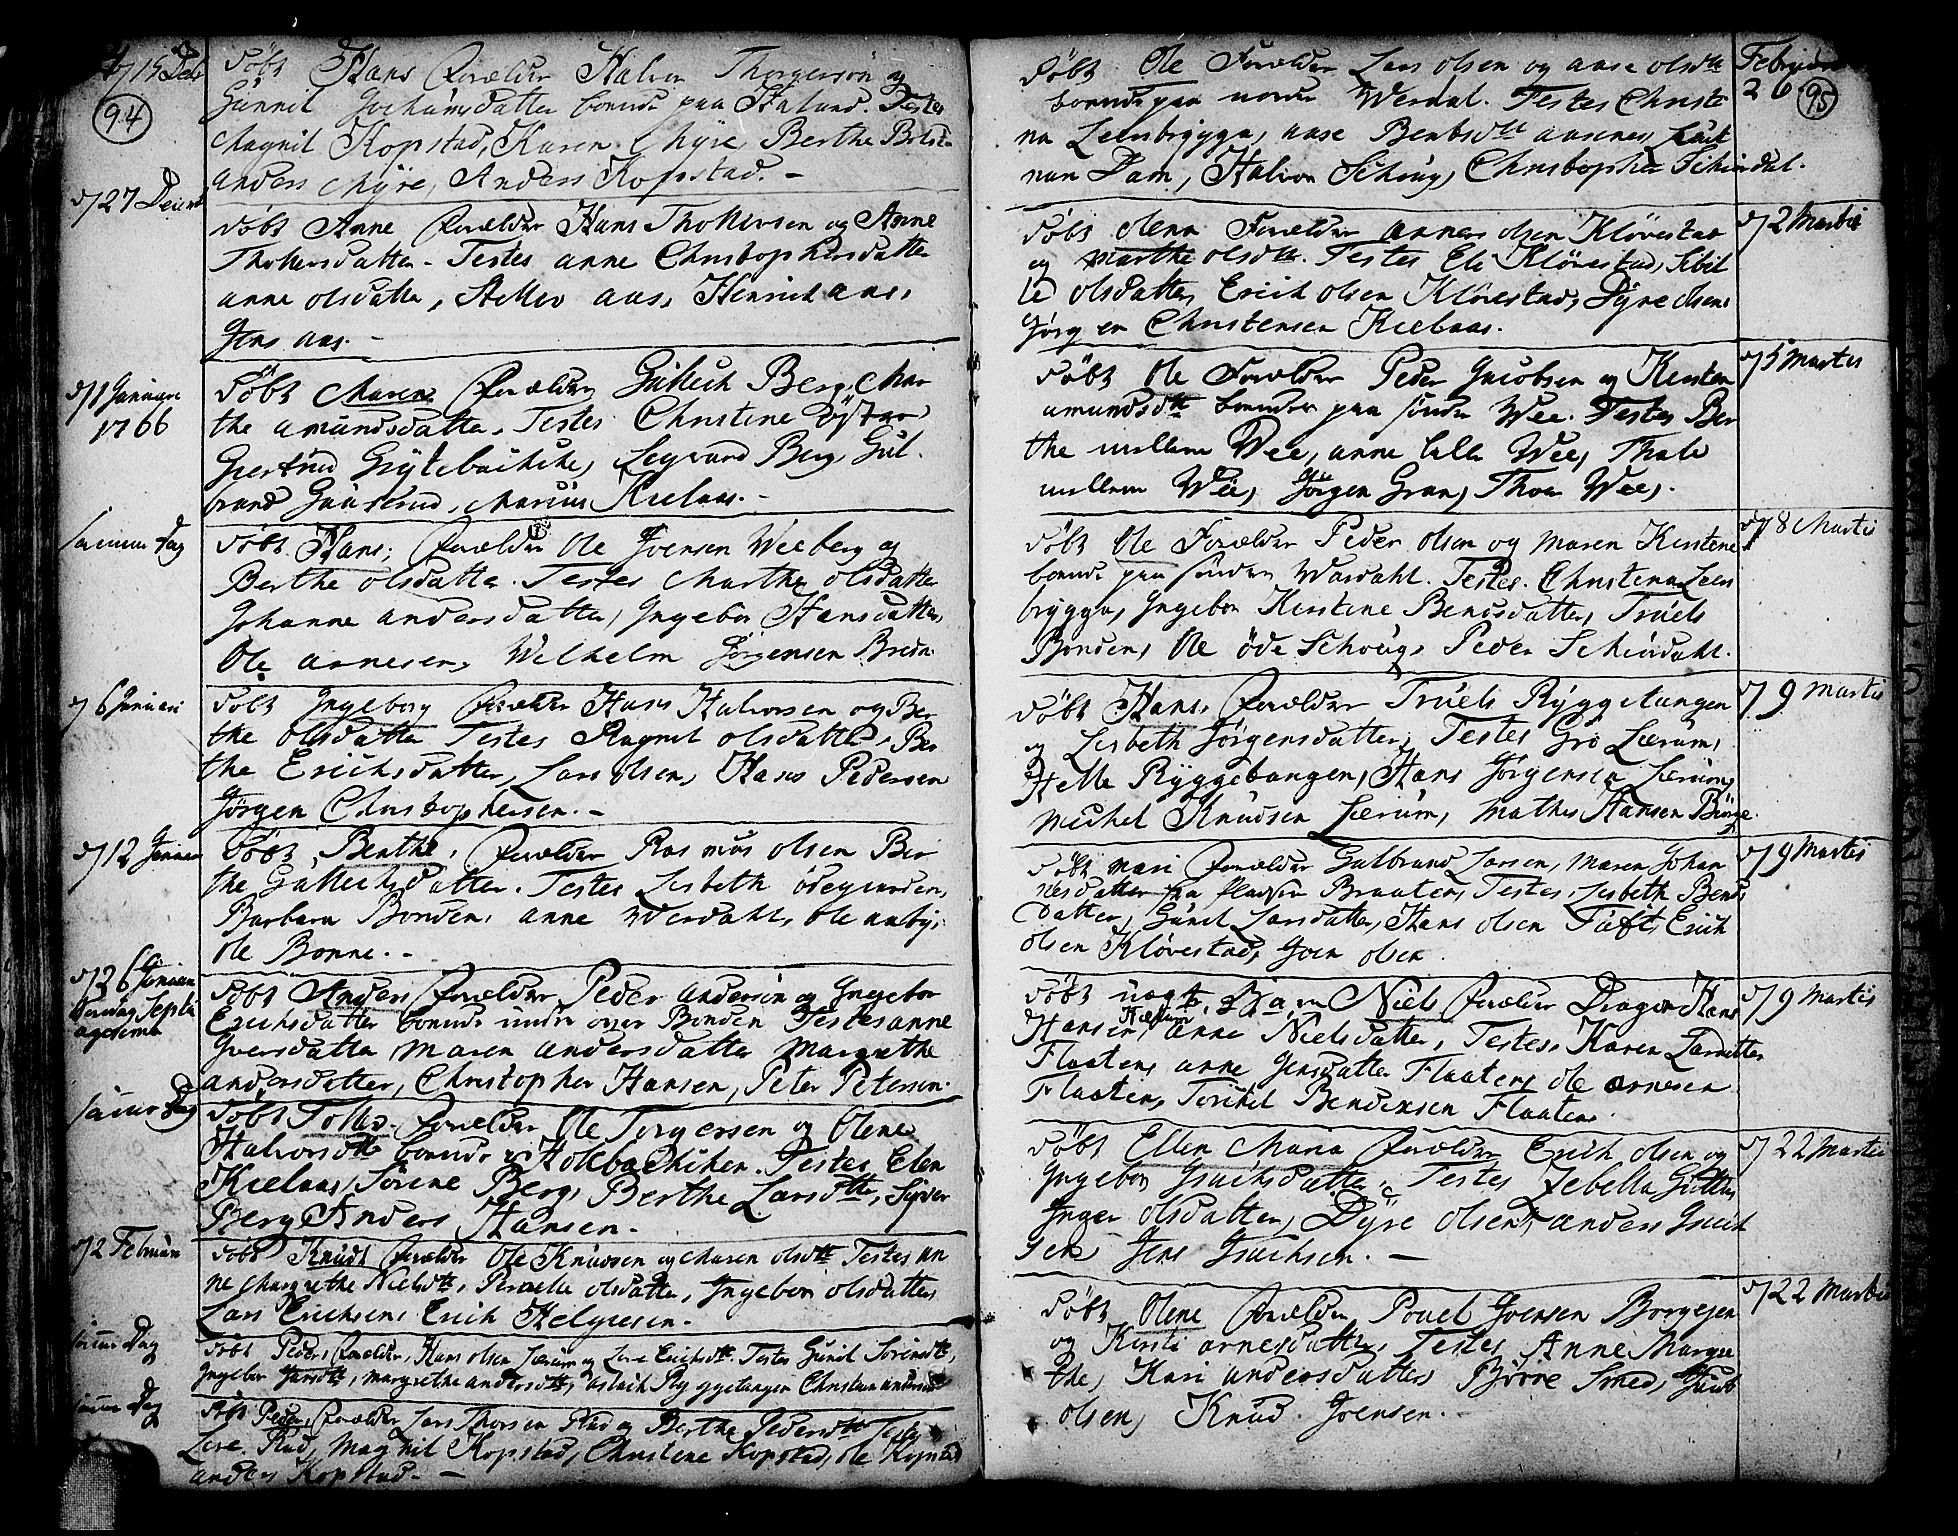 94
d 15 Dec
Döbt Hans Forældre Halvor Thorgerson og
Gunnil Jochumsdatter boende paa Testes
Magnil Kopstad, Karen Myre, Berthe
anders Myre, Anders Kopstad. -
d 27 Decemb
Döbt Anne Forældre Hans Thollevsen og Anne
Thollersdatter - Testes anne Christophersdatter
anne olsdatter, aas, Henrich aas,
Jens aas. -
d 1 Januari
1766
Döbt Maren Forældre Gulleich Berg, Mar
the amundsdatter. Testes Christine
Giertrud Grytebechihe, Segvard Berg, Gul
brand Gaustrud, Marius Kielaas. -
samme Dag
Döbt Hans, Forældre Ole Joensen Weeberg og
Berthe olsdatter. Testes Marthe olsdatter
Johanne andersdatter, Ingebor Hansdatter,
Ole arnesen, Wilhelm Jörgensen
d 6 Januari
Döbt Ingeborg Forældre Hans Halvorsen og Ber
the olsdatter Testes Ragnil olsdatter, Ber
the Erichsdatter, Lars olsen, Hans Pedersen
Jörgen Christophersen. -
d 12 Januari
Döbt Berthe, Forældre Rasmus olsen Ber
the Gullechsdatter. Testes Lisbeth ödegaarden,
Barbara Bonden, anne Werdahl, ole aaby,
ole Bonne. -
d 26 Januari
Septu
agesima
Döbt Anders Forældre Peder andersen og Ingebor
Erichsdatter boende under over Bonden Testes anne
Iversdatter, Maren andersdatter Margrethe
andersdatter, Christopher Hansen, Peter Petersen.
samme Dag
Döbt Tolle Forældre Ole Torgersen og Olene
Halvorsdtr boende i Holbechihen. Testes Elen
Kielaas, Sörine Berg, Berthe Larsdtr, Syver
Berg Anders Hansen. -
d 2 Februari
Döbt Knud, Forældre Ole Knudsen og Maren olsdtr Testes an
ne Margrethe Nielsdtr, Pernelle olsdatter, Ingebor olsdatter
Lars Erichsen, Erich Helgresen. -
samme Dag
Döbt Peder, Forældre, Hans olsen Lærum og Live Erichsdtr. Testes Gunil Sörensdtr,
Ingebor Hansdtr, margrethe andersdtr, aslach Ryggetangen Christian andersen
samme Dag
Döbt Peder, Forældre Lars Thorsen Rud og Berthe Pedersdtr Testes
Live Rud, Magnil Kopstad, Christene Kopstad, ole Kopstad
anders Kopstad. -
95
Februari
26
Döbt Ole Forældre Lars olsen og aase olsdtr
boende paa nordre Werdal. Testes Christi
na Leensbrygga, aase Bentsdtr aasnes, Leut
nan Dam, Halvor Schoug, Christopher Schindal.
d 2 Martii
Döbt olena Forældre anders olsen Klövestad
og Marthe olsdtr. Testes Ele Klövestad, Sibil
le olsdatter, Erich olsen Klövestad, Dyre olsen,
Jörgen Christensen Kielaas.
d 5 Martii
Döbt Ole Forældre Peder Jacobsen og Kirsten
amundsdtr boende paa söndre Wee. Testes Ber
the mellem Wee, anne lille Wee, Thale
mellem Wee, Jörgen Gran, Thor Wee.
d 8 Martii
Döbt Ole Forældre Peder olsen og maren Kirstine
boende paa söndre Wardahl. Testes. Christena Leen
brygga, Ingebor Kirstine Bendsdatter, Truels
Bonden, Ole öde Schoug, Peder Schindahl.
d 9 Martii
Döbt Hans, Forældre Truels Ryggetangen
og Lisbeth Jörgensdatter, Testes Gro Lærum,
Helle Ryggetangen, Hans Jörgensen Lærum,
Michel Knudsen Lærum, Mathes Hansen Börge.
d 9 Martii
Döbt mari Forældre Gulbrand Larsen, maren Johan
nesdatter fra pladsen Braaten, Testes Lisbeth Bends
datter, Gunil Larsdatter, Hans olsen Tuft, Erich
olsen Klövestad, Joen olsen.
d 9 Martii
Döbt Niels Forældre Dragon Hans
Hansen, anne Nielsdatter, Testes, Karen Larsdtter
Flaaten, anne Jensdatter Flaaten, ole arnesen
Flaaten, Torchel Bendixsen Flaaten.
d 22 Martii
Döbt Ellen Maria Forældre Erich olsen og
Ingebor Isachsdatter, Testes Zebella
Inger olsdatter, Dyre olsen, anders Isach
sen, Jens Isachsen. -
d 22 Martii
Döbt Olene Forældre Povel Joensen Borgejen
og Kirsti arnesdatter, Testes Anne Margre
the, Kari andersdatter Börre Smed,
olsen, Knud Joensen.